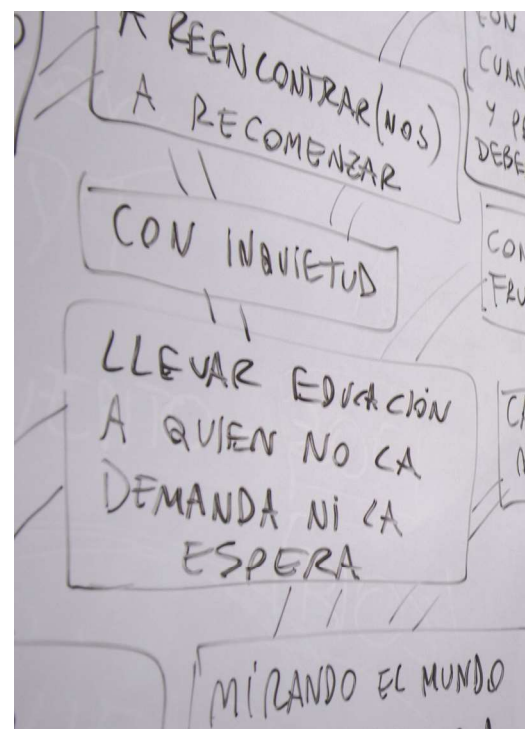 A REENCONTRAR(NOS)
A RECOMENZAR
CON INQUIETUD
LLEVAR EDUCACIÓN
A QUIEN NO LA
DEMANDA NI LA
ESPERA
MIRANDO EL MUNDO
CON
Y
DEBE